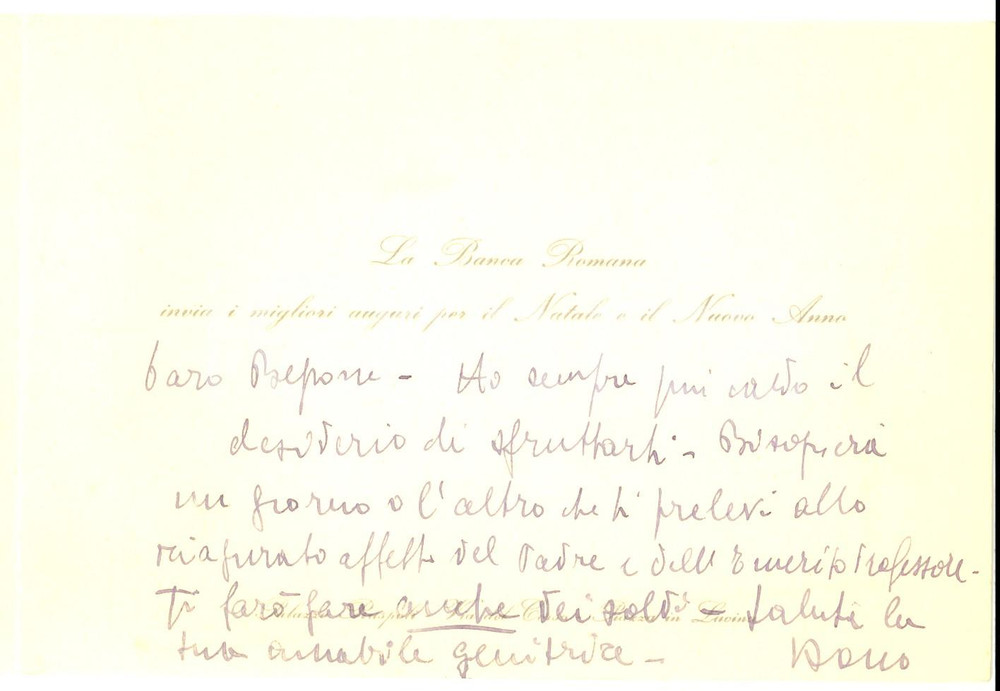 La Banca Romana
invia i migliori auguri per il Natale e il Nuovo Anno
Caro Bepone - Ho sempre più caldo il
desiderio di sfruttarti - Bisognerà
un giorno o l'altro che ti prelevi allo
sciagurato affetto del Padre e dell'Emerito Professore -
Ti farò fare anche dei soldi - Saluta la
tua amabile genitrice -